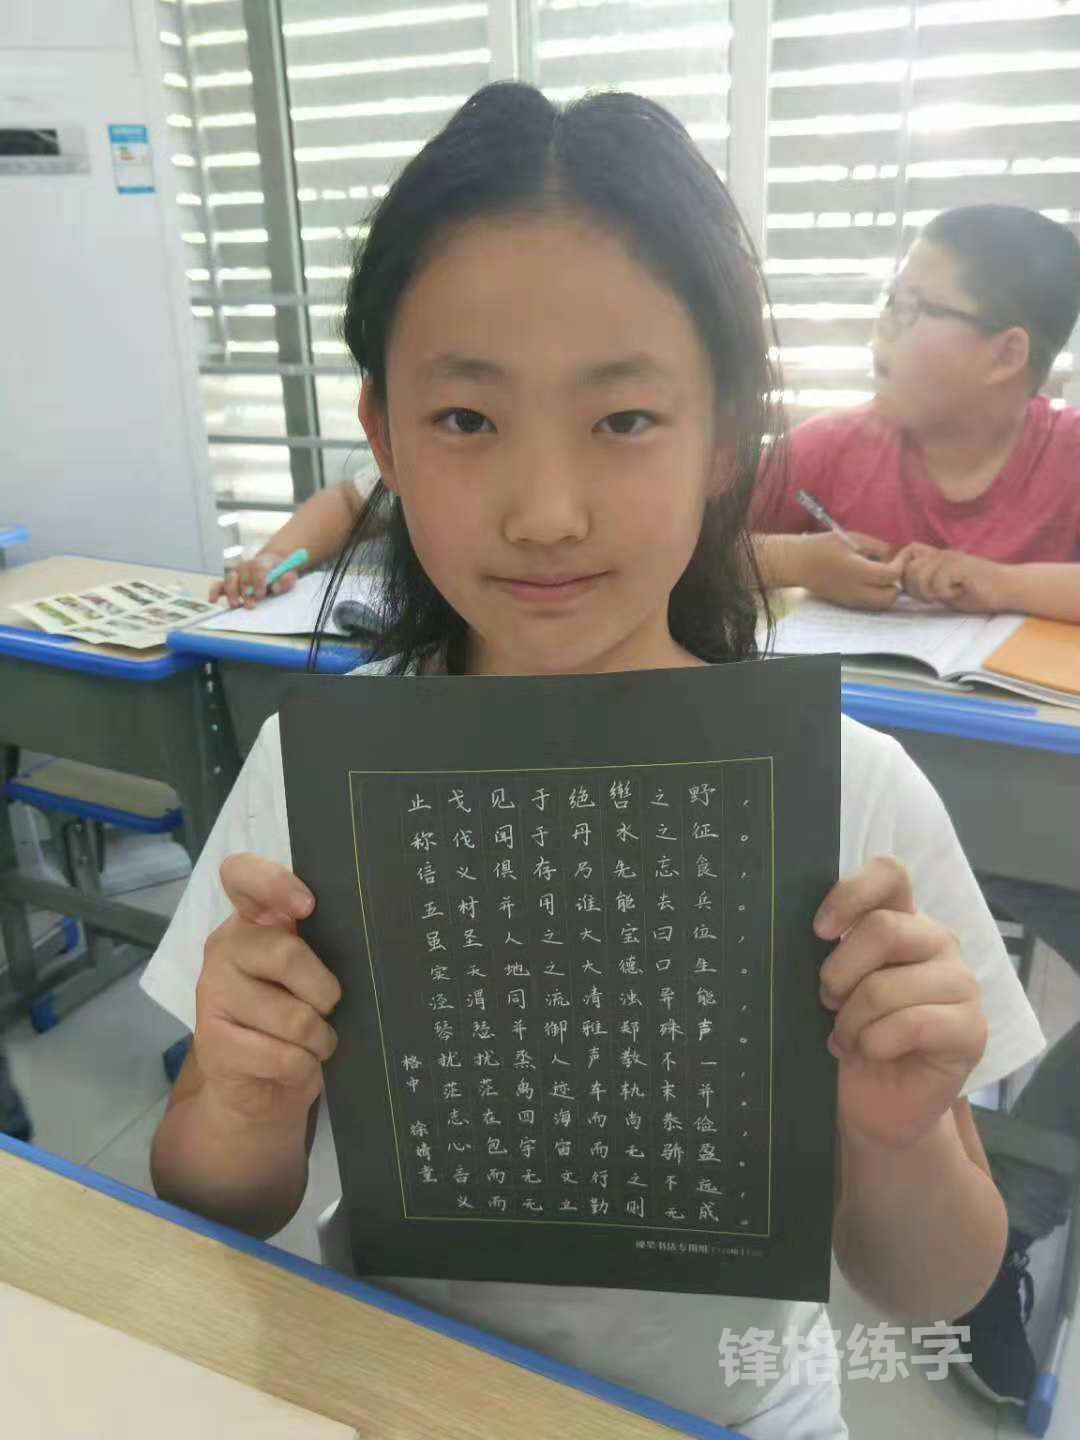 止戈见于绝辔之野，
称伐闻于丹水之征。
信义俱存乃先忘食，
五材并用谁能去兵。
虽圣人之大宝曰位，
实天地之大德口生。
泾渭同流清浊异能，
琴瑟并御雅郑殊声。
扰扰烝人声教不一，
茫茫禹迹车轨未并。
志在四海而尚恭俭，
心包宇宙而无骄盈。
言而无文行之不远，
义而无立勤则无成。
格中 徐
硬笔书法专用纸
锋格练字